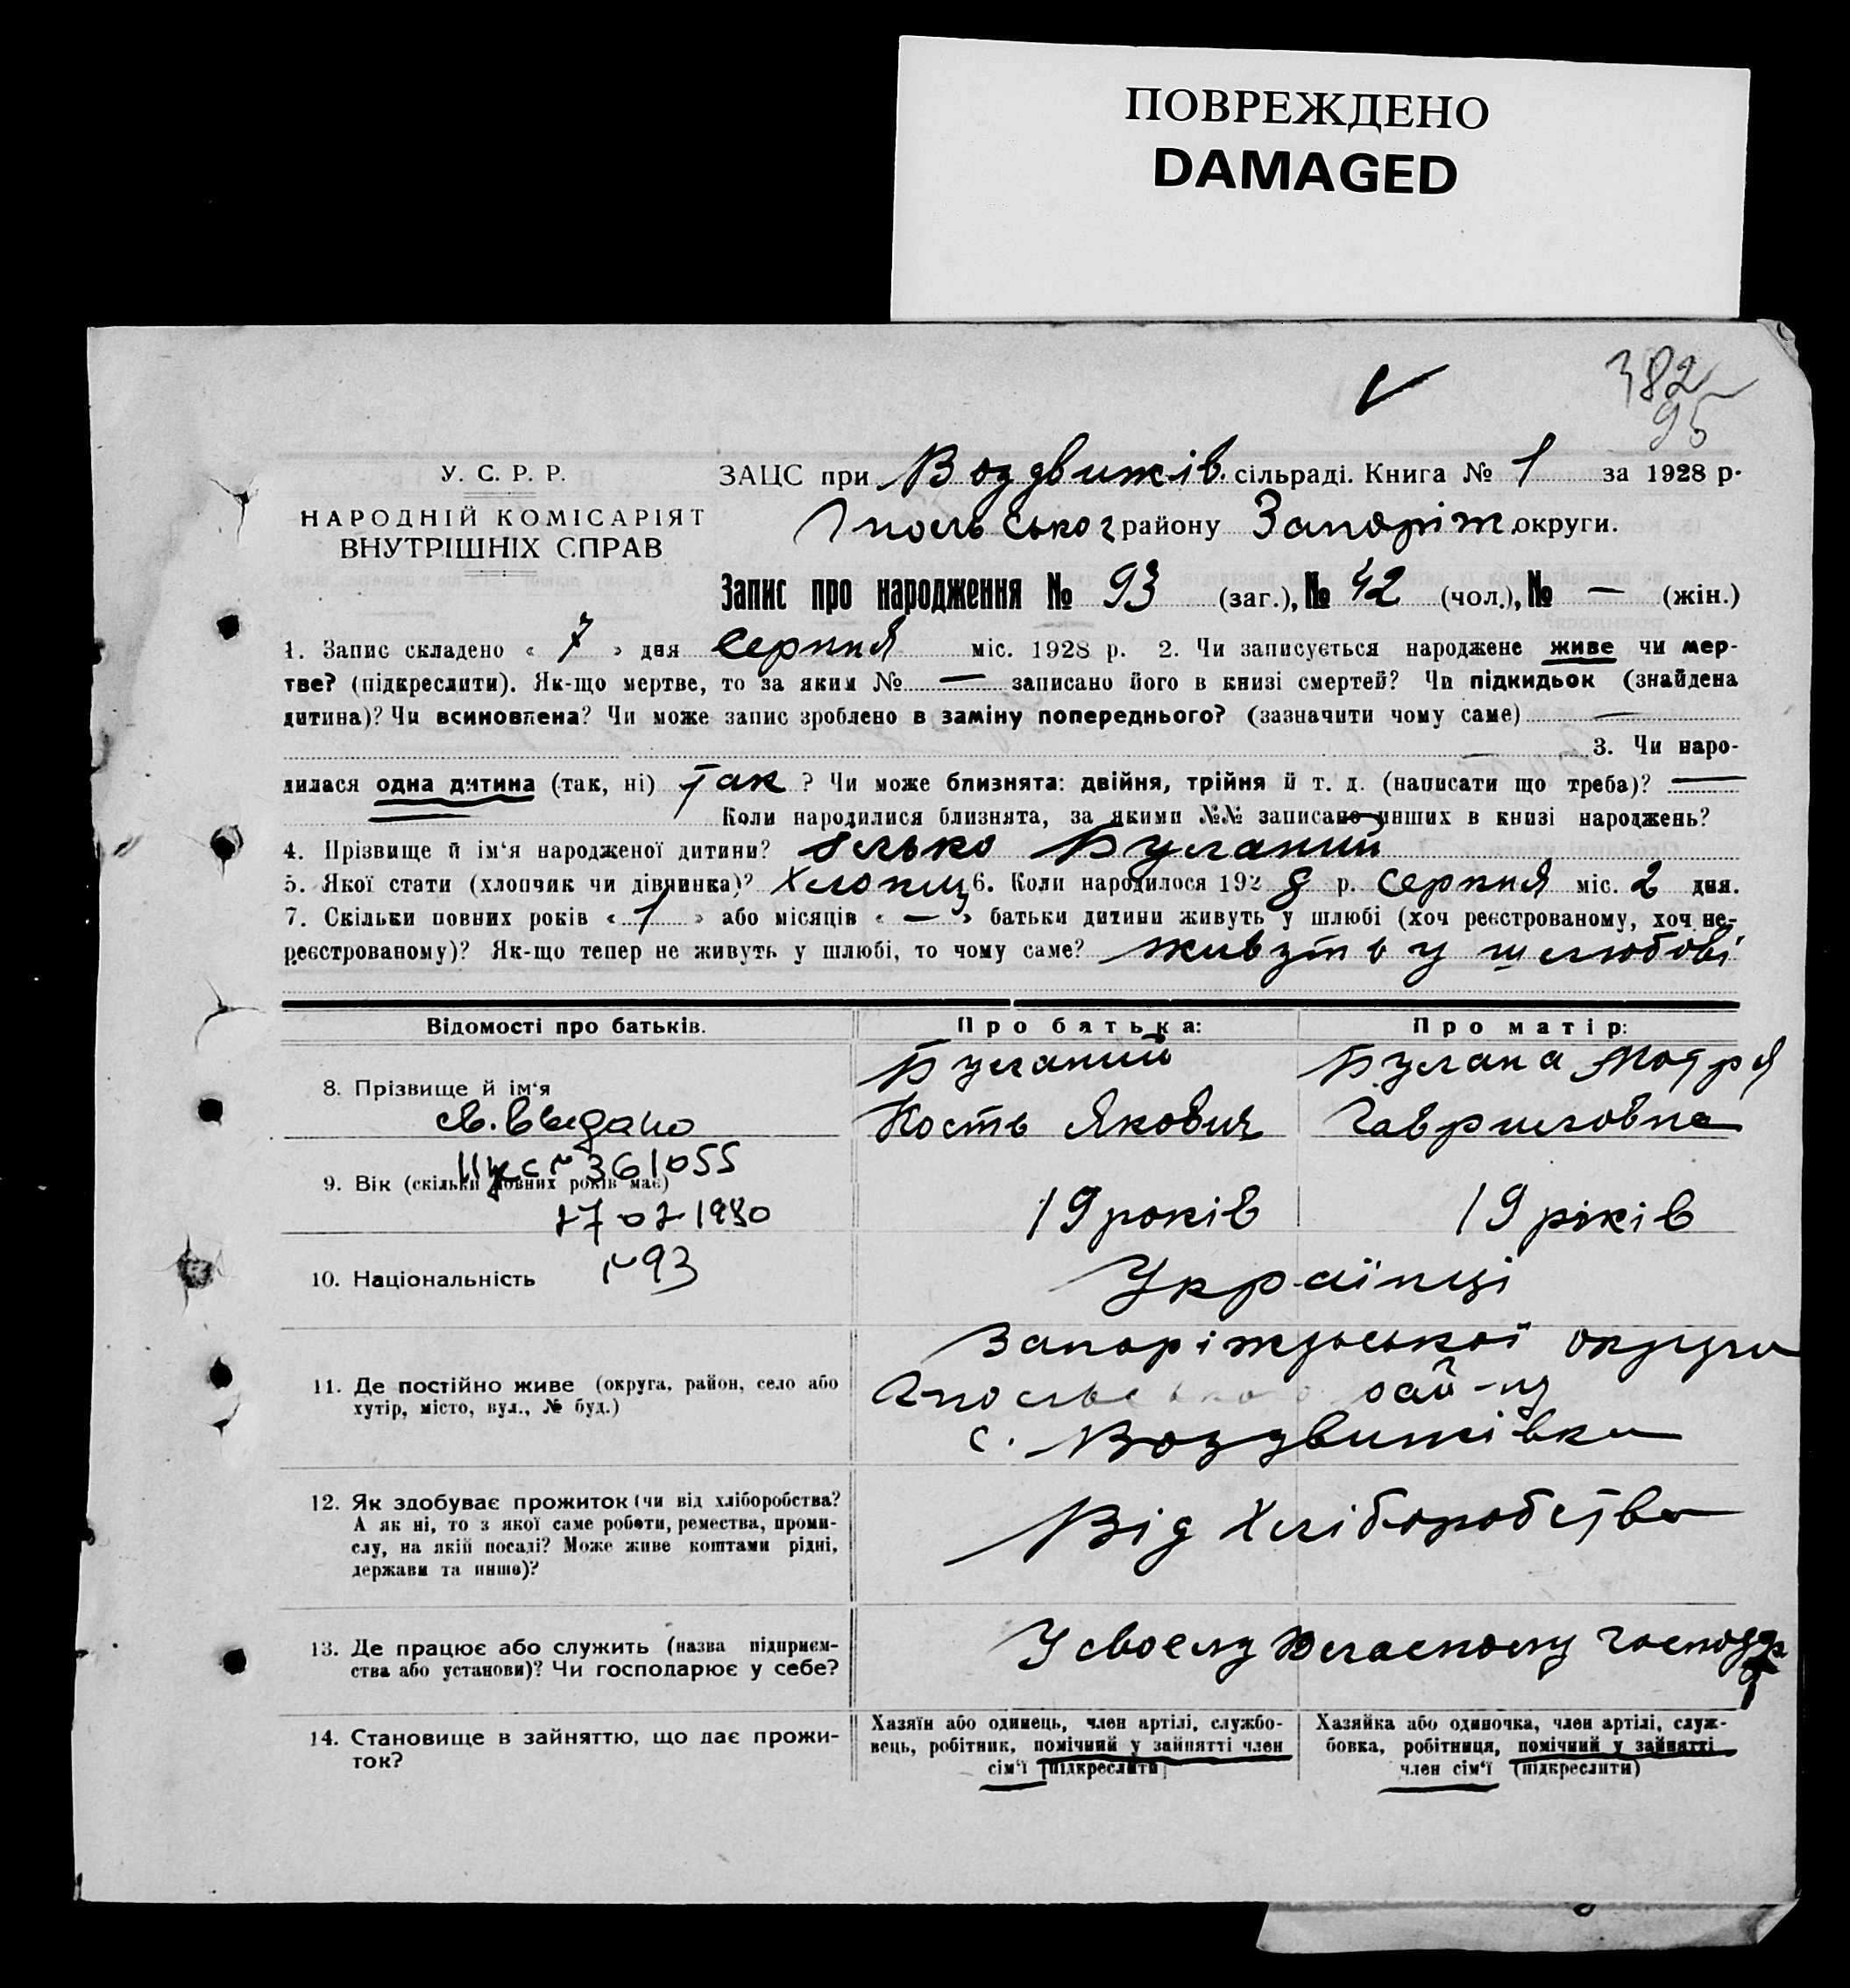 ПОВРЕЖДЕНО
DAMAGED
382
95
У. С. Р. Р.
НАРОДНІЙ КОМІСАРІЯТ
ВНУТРІШНІХ СПРАВ
ЗАЦС при Воздвижів. сільраді. Книга № 1 за 1928 р.
району Запоріж. округи.
Запис про народження № 93 (заг.), № 42 (чол.), № — (жін.)
1. Запис складено « 7 » дня Серпня міс. 1928 р. 2. Чи записується народжене живе чи мер-
тве? (підкреслити). Як-що мертве, то за яким № — записано його в книзі смертей? Чи підкидьок (знайдена
дитина)? Чи всиновлена? Чи може запис зроблено в заміну попереднього? (зазначити чому саме) —
3. Чи наро-
дилася одна дитина (так, ні) Так ? Чи може близнята: двійня, трійня й т. д. (написати що треба)? —
Коли народилися близнята, за якими №№ записано инших в книзі народжень?
4. Прізвище й ім'я народженої дитини? Булащий
5. Якої стати (хлопчик чи дівчинка)? Хлопиц 6. Коли народилося 1928 р. Серпня міс. 2 дня.
7. Скільки повних років « 1 » або місяців « — » батьки дитини живуть у шлюбі (хоч реєстрованому, хоч не-
реєстрованому)? Як-що тепер не живуть у шлюбі, то чому саме? живуть у шлюбові
Відомості про батьків.
Про батька:
Про матір:
8. Прізвище й ім'я
Буланий
Кость Якович
Булана Мотря
Гавриловна
св. выдано
№ 361055
9. Вік (скільки повних років має)
19 років
19 років
27 02 1980
№ 93
10. Національність
Українці
11. Де постійно живе (округа, район, село або
хутір, місто, вул., № буд.)
Запоріжської округи
рай-ну
с. Воздвижівка
12. Як здобуває прожиток (чи від хліборобства?
А як ні, то з якої саме роботи, ремества, проми-
слу, на якій посаді? Може живе коштами рідні,
держави та инше)?
Від Хліборобства
13. Де працює або служить (назва підприєм-
ства або установи)? Чи господарює у себе?
У своєму власному господар
14. Становище в зайняттю, що дає прожи-
ток?
Хазяїн або одинець, член артілі, службо-
вець, робітник, помічний у зайнятті член
сім'ї [підкреслити]
Хазяйка або одиночка, член артілі, служ-
бовка, робітниця, помічний у зайнятті
член сім'ї (підкреслити)